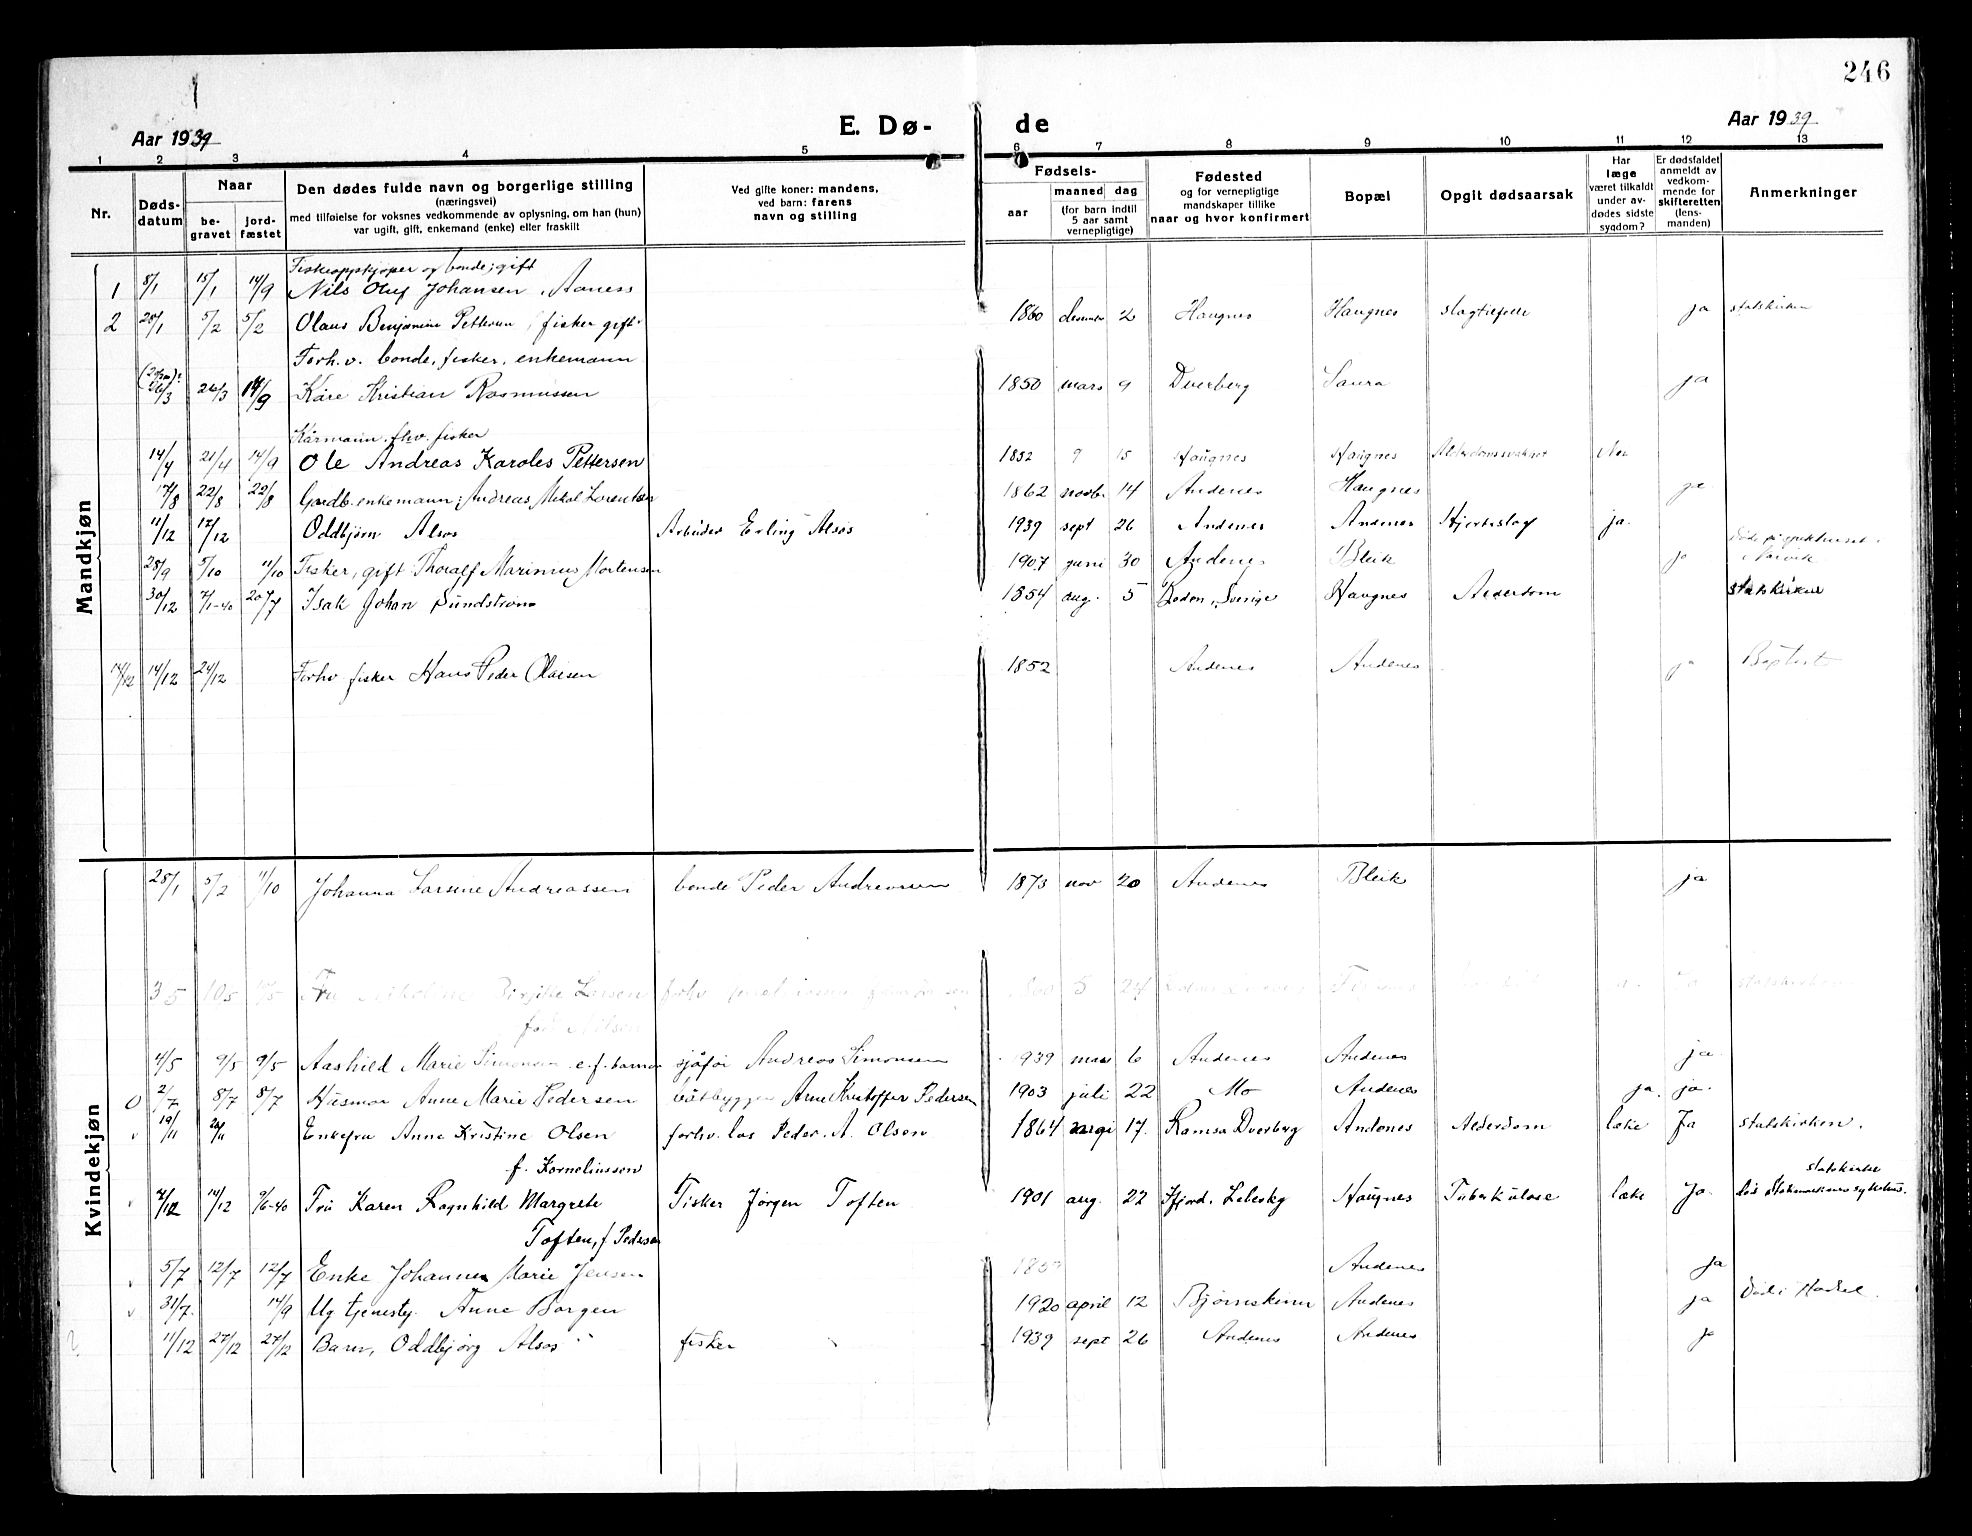 246
Aar 1939
E. Dø-
de
Aar 1939
1 2 3 4 5 6 7 8 9 10 11 12 13
Nr.
Døds-
datum
Naar
be-
gravet
jord-
fæstet
Den dødes fulde navn og borgerlige stilling
(næringsvei)
med tilføielse for voksnes vedkommende av oplysning, om han (hun)
var ugift, gift, enkemand (enke) eller fraskilt
Ved gifte koner: mandens,
ved barn: farens
navn og stilling
Fødsels-
aar
maaned
dag
(for barn indtil
5 aar samt
vernepligtige)
Fødested
og for vernepligtige
mandskaper tillike
naar og hvor konfirmert
Bopæl
Opgit dødsaarsak
Har
læge
været tilkaldt
under av-
dødes sidste
sygdom?
Er dødsfaldet
anmeldt av
vedkom-
mende for
skifteretten
(lens-
manden)
Anmerkninger
Mandkjøn
Fiskeoppkjøper og bonde; gift
1 8/1 15/1 14/9 Nils Oluf Johansen, Aaness
2 28/1 5/2 5/2 Olaus Benjamin Pettersen, fisker gift 1860 desember 2 Haugnes Haugnes slagtilfelle ja statskirken
Forh. v. bonde, fisker, enkemann
26/3 14/9 Kåre Kristian Rasmussen 1850 mars 9 Dverberg Saura ja
Kårmann, fhv. fisker
14/4 21/4 14/9 Ole Andreas Karoles Pettersen 1852 9 15 Haugnes Haugnes
17/8 22/8 22/8 Gardb. enkemann; Andreas Mikal Lorentsen 1862 novbr 14 Andenes Haugnes ja
11/12 17/12 Oddbjørn Alsos Arbeider Erling Alsos 1939 sept 26 Andenes Andenes Hjerteslag ja.
28/9 5/10 11/10 Fisker, gift Thoralf Marinius Mortensen 1907 juni 30 Andenes Bleik ja Døde på sykehuset i
Narvik
30/12 7/1-40 20/7 Isak Johan Sundstrøm 1854 aug. 5 Boden, Sverige Haugnes Alderdom statskirken
14/12 14/12 24/12 Forhv fisker Hans Peder Olaisen 1852 Andenes Andenes ja Baptist
Kvindekjøn
28/1 5/2 11/10 Johanna Larsine Andreassen bonde Peder Andreassen 1873 nov 20 Andenes Bleik ja
3 5 10 5 Fru Nikoline Birgitte Larsen forhv 5 24
4/5 9/5 9/5 Aashild Marie Simonsen e.f. barn sjåfør Andreas Simonsen 1939 mars 6 Andenes Andenes ja
0 2/7 8/7 8/7 Husmor Anne Marie Pedersen båtbygger Arne Kristoffer Pedersen 1903 juli 22 Mo Andenes ja. ja.
19/11 Enkefru Anne Kristine Olsen forhv. los Peder. A. Olsen 1864 17. Ramsa Dverberg Andenes Alderdom læke Ja statskirken.
f. Korneliussen
statskirke
7/12 14/12 9/6-40 Fru Karen Ragnhild Margrete Fisker Jørgen Toften 1901 aug. 22 Kjord. Lebesby Haugnes Tuberkulose læke Ja.
Toften, f Pedersen
5/7 12/7 12/7 Enke Johanna Marie Jensen Andenes Ja
31/7. 14/9 Ug tjenestp. Anne Borgen 1920 april 12 Bjørnskinn Andenes ja Død i Hadsel.
11/12 27/12 27/12 Barn, Oddbjørg Alsos fisker 1939 sept 26 Andenes Andenes ja